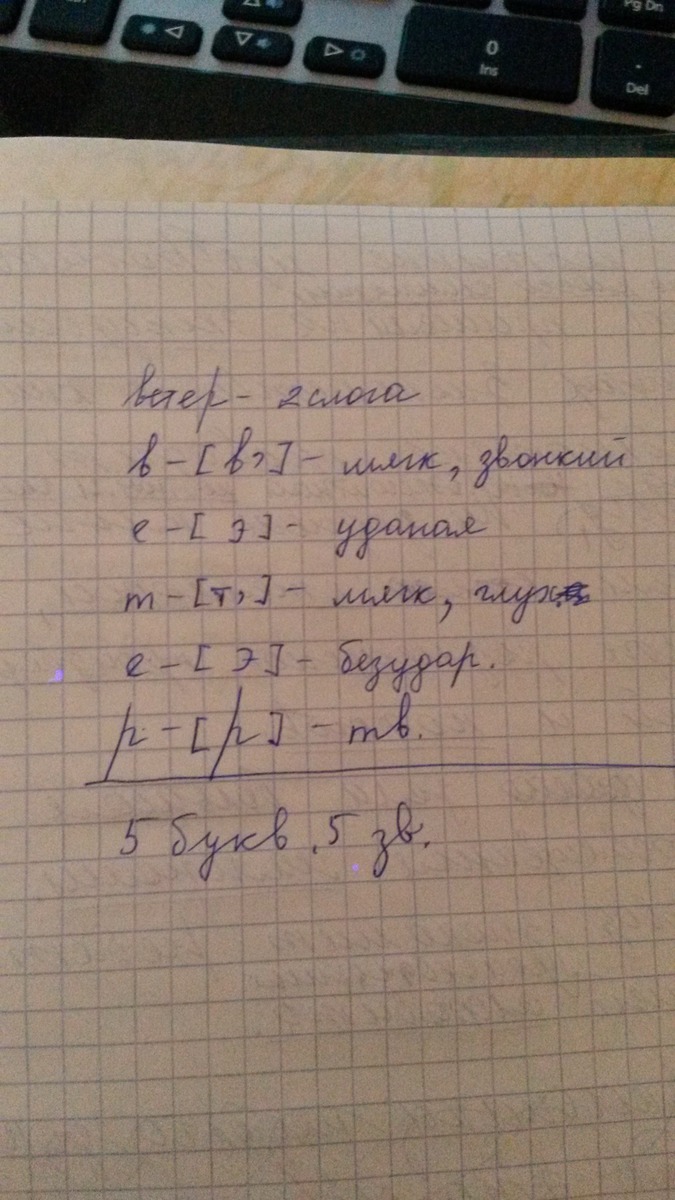 Pg Dn
0
Ins
.
Del
ветер - 2 слога
в - [в'] - мягк, звонкий
е - [э] - уданая
т - [т,] - мягк, глух
е - [э] - безудар.
р - [р] - тв.
5 букв, 5 зв.